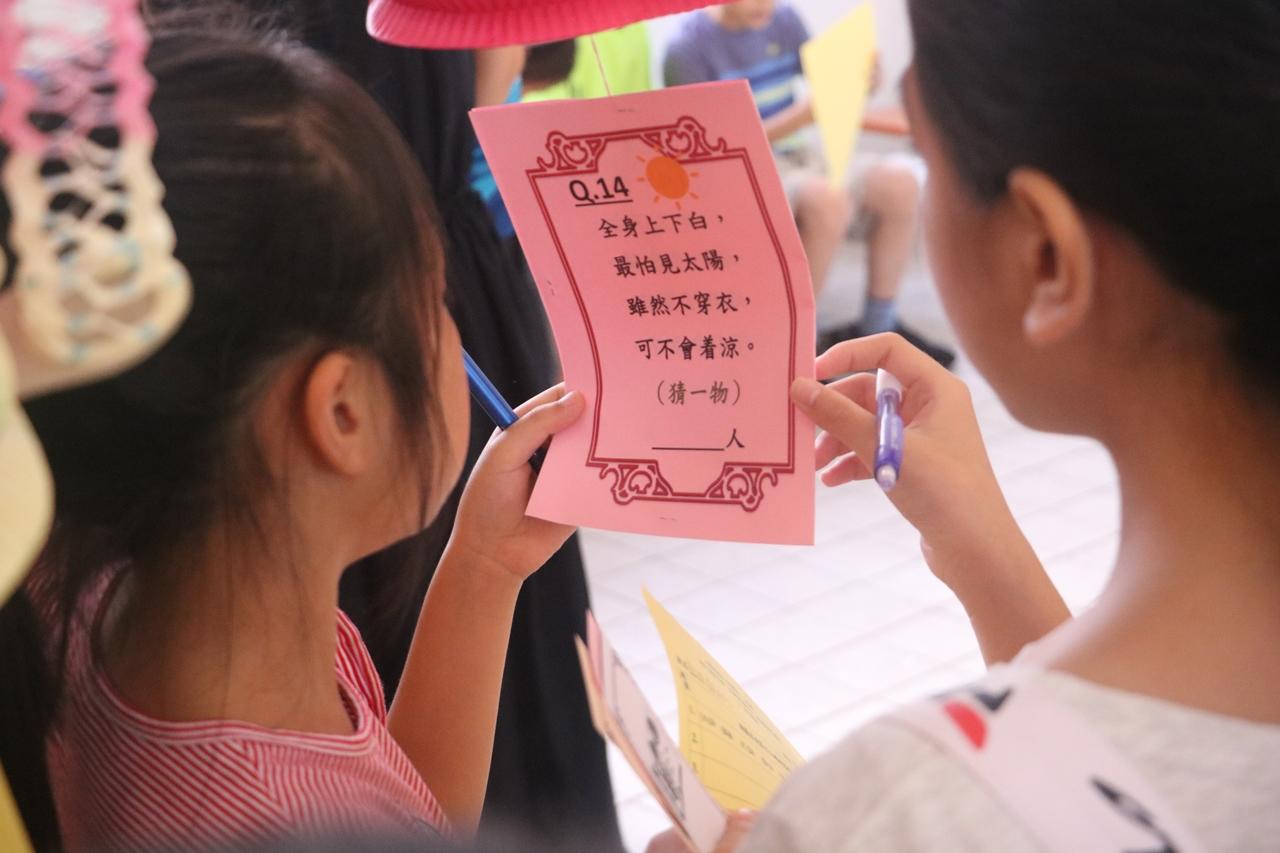 Q.14
全身上下白，
最怕見太陽，
雖然不穿衣，
可不會着涼。
（猜一物）
______人